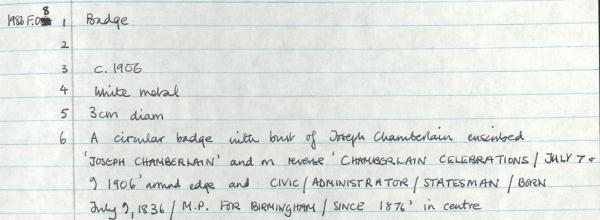 1986 F.08 1 Badge
2
3 c. 1906
4 White metal
5 3cm diam
6 A circular badge with bust of Joseph Chamberlain enscribed
'JOSEPH CHAMBERLAIN' and on reverse 'CHAMBERLAIN CELEBRATIONS / JULY 7 &
9 1906' around edge and CIVIC / ADMINISTRATOR / STATESMAN / BORN
July 9, 1836 / M.P. FOR BIRMINGHAM / SINCE 1876' in centre